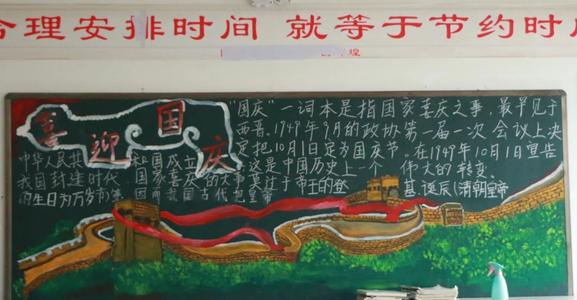 合理安排时间 就等于节约时
煌
喜迎国庆
"国庆"一词本是指国家喜庆之事,最早见于
西晋.1949年9月的政协第一届一次会议上决
定把10月1日定为国庆节.在1949年10月1日宣告
中华人民共 和国成立 这是中国历史上一个 伟大的转变.
我国封建时代 国家喜庆的大事莫过于帝王的登 基、诞辰(清朝皇帝
的生日为万岁 因而我国古代把皇帝